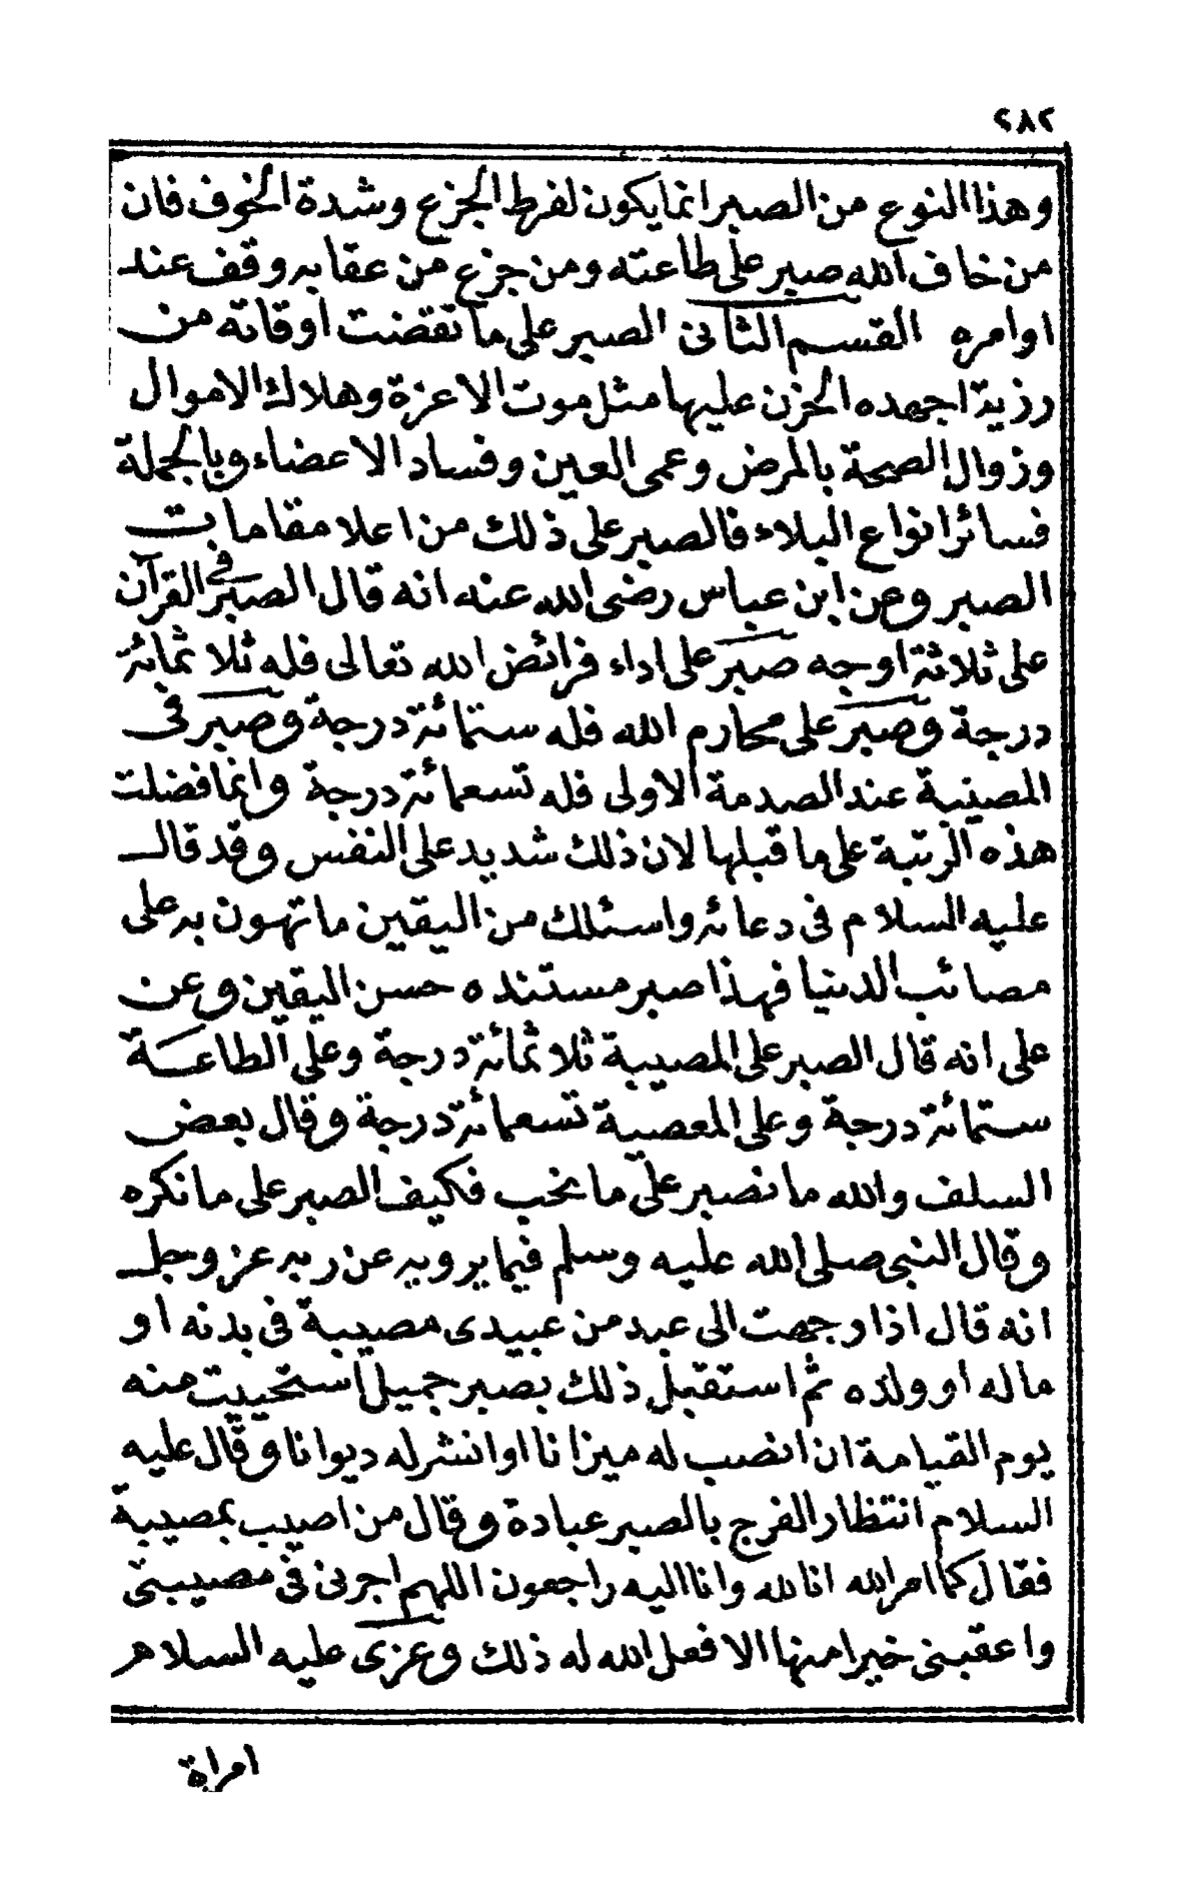 ٢٨٢
وهذا النوع من الصبر انما يكون لفرط الجزع وشدة الخوف فان
من خاف الله صبر على طاعته ومن جزع من عقابه وقف عند
اوامره القسم الثانى الصبر على ما تقضت اوقاته من
رزية اجهده الحزن عليها مثل موت الاعزة وهلاك الاموال
وزوال الصحة بالمرض وعمى العين وفساد الاعضاء وبالجملة
فسائر انواع البلاء فالصبر على ذلك من اعلا مقامات
الصبر وعن ابن عباس رضى الله عنه انه قال الصبر فى القرآن
على ثلاثة اوجه صبر على اداء فرائض الله تعالى فله ثلاثمائة
درجة وصبر على محارم الله فله ستمائة درجة وصبر فى
المصيبة عند الصدمة الاولى فله تسعمائة درجة وانما فضلت
هذه الرتبة على ما قبلها لان ذلك شديد على النفس وقد قال
عليه السلام فى دعائه واسئلك من اليقين ما تهون به على
مصائب الدنيا فهذا صبر مستنده حسن اليقين وعن
على انه قال الصبر على المصيبة ثلاثمائة درجة وعلى الطاعة
ستمائة درجة وعلى المعصية تسعمائة درجة وقال بعض
السلف والله ما نصبر على ما نحب فكيف الصبر على ما نكره
وقال النبى صلى الله عليه وسلم فيما يرويه عن ربه عز وجل
انه قال اذا وجهت الى عبد من عبيدى مصيبة فى بدنه او
ماله او ولده ثم استقبل ذلك بصبر جميل استحييت منه
يوم القيامة ان انصب له ميزانا او انشر له ديوانا وقال عليه
السلام انتظار الفرج بالصبر عبادة وقال من اصيب بمصيبة
فقال كما امر الله انا لله وانا اليه راجعون اللهم اجرنى فى مصيبتى
واعقبنى خيرا منها الا فعل الله له ذلك وعزى عليه السلام
امراة